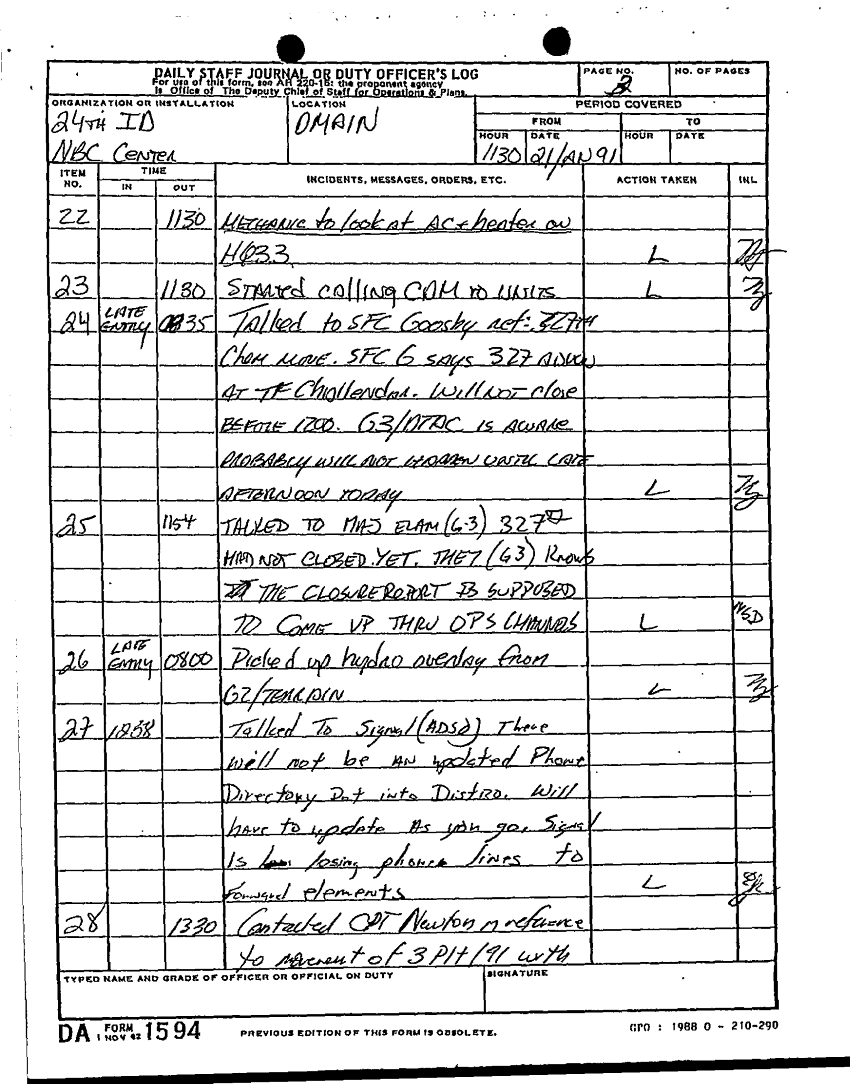 DAILY STAFF JOURNAL OR DUTY OFFICER'S LOG
For use of this form, see AR 220-15; the proponent agency
is Office of The Deputy Chief of Staff for Operations & Plans.
PAGE NO.
2
NO. OF PAGES
ORGANIZATION OR INSTALLATION
24TH ID
NBC CENTER
LOCATION
DMAIN
PERIOD COVERED
FROM
TO
HOUR
DATE
HOUR
DATE
1130 21JAN91
ITEM NO.
TIME
IN
OUT
INCIDENTS, MESSAGES, ORDERS, ETC.
ACTION TAKEN
INL
22 1130 MECHANIC to look at AC + heater on
HQ33 L
23 1130 STARTED calling CDM TO UNITS L
24 LATE ENTRY 0835 Talked to SFC Goosby ref: 327TH
Chem move. SFC G says 327 ADVON
AT TF Challendar. Will NOT close
BEFORE 1200. G3/DTAC is AWARE
PROBABLY WILL NOT HAPPEN UNTIL LATE
AFTERNOON TODAY L
25 1154 TALKED TO MAJ ELAM (G-3) 327TH
HAD NOT CLOSED YET. THEY (G3) Knows
THE CLOSURE REPORT IS SUPPOSED
TO COME UP THRU OPS CHANNELS L WSD
26 LATE ENTRY 0800 Picked up hydro overlay from
G2/TERRAIN L
27 1238 Talked To Signal (ADSO) There
will not be AN updated Phone
Directory Put into Distro. Will
have to update As you go. Signal
Is losing phone lines to
Forward elements L
28 1330 Contacted CPT Newton in reference
to movement of 3 Plt/91 with
TYPED NAME AND GRADE OF OFFICER OR OFFICIAL ON DUTY
SIGNATURE
DA FORM 1 NOV 62 1594
PREVIOUS EDITION OF THIS FORM IS OBSOLETE.
GPO : 1988 O - 210-290